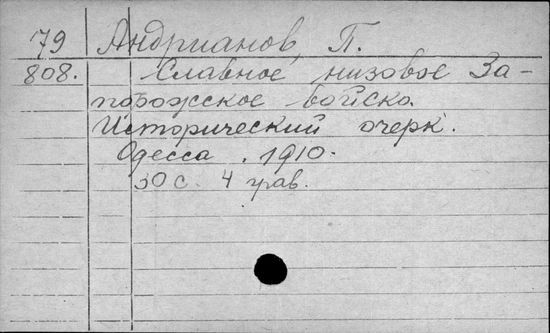 79 Андрианов, П.
808. Славное низовое За-
порожское войско.
Исторический очерк.
Одесса. 1910.
30 с. 4 грав.